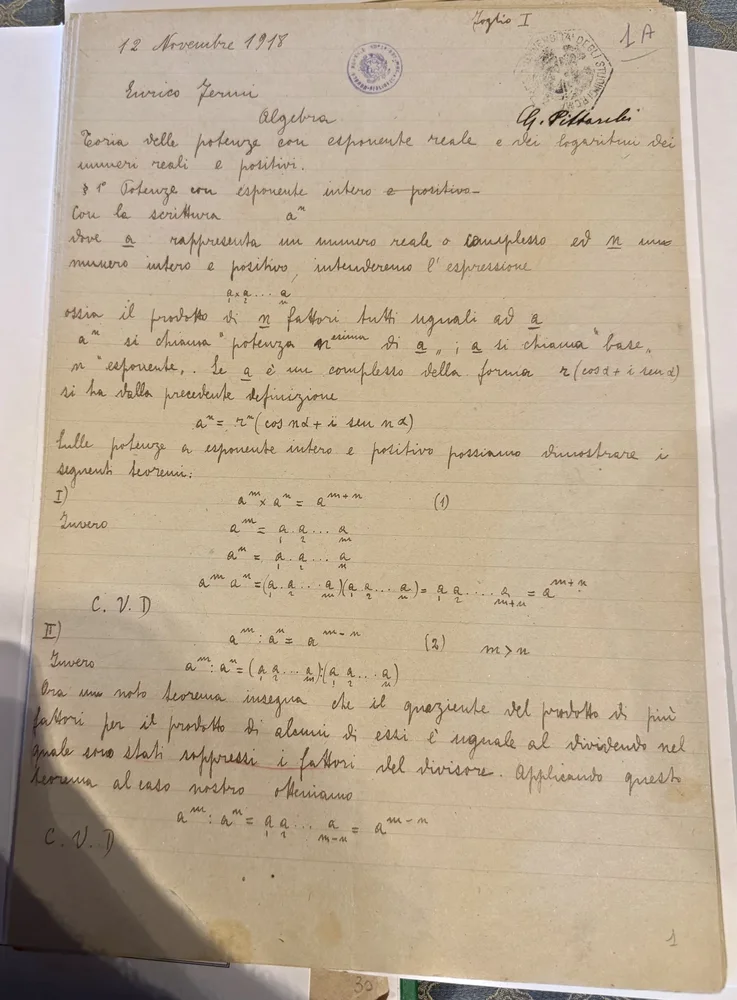 Foglio I
1A
12 Novembre 1918
Enrico Fermi
G. Pittarelli
Algebra
Teoria delle potenze con esponente reale e dei logaritmi dei
numeri reali e positivi.
§ 1° Potenze con esponente intero e positivo
Con la scrittura aⁿ
dove a rappresenta un numero reale o complesso ed n un
numero intero e positivo, intenderemo l'espressione
a × a ... a
1 2 n
ossia il prodotto di n fattori tutti uguali ad a
aⁿ si chiama "potenza nesima di a„; a si chiama "base„
n "esponente„. Se a è un complesso della forma r(cosα + i senα)
si ha dalla precedente definizione
aⁿ = rⁿ(cos nα + i sen nα)
Sulle potenze a esponente intero e positivo possiamo dimostrare i
seguenti teoremi:
I) aᵐ × aⁿ = aᵐ⁺ⁿ (1)
Invero aᵐ = a . a ... a
1 2 m
aⁿ = a . a ... a
1 2 n
aᵐ aⁿ = (a . a ... a)(a a ... a) = a a .... a = aᵐ⁺ⁿ
1 2 m 1 2 n 1 2 m+n
C. V. D
II) aᵐ : aⁿ = aᵐ⁻ⁿ (2) m > n
Invero aᵐ : aⁿ = (a a ... a):(a a ... a)
1 2 m 1 2 n
Ora un noto teorema insegna che il quoziente del prodotto di più
fattori per il prodotto di alcuni di essi è uguale al dividendo nel
quale sono stati soppressi i fattori del divisore. Applicando questo
teorema al caso nostro otteniamo
aᵐ : aⁿ = a a ... a = aᵐ⁻ⁿ
1 2 m-n
C. V. D
1
30